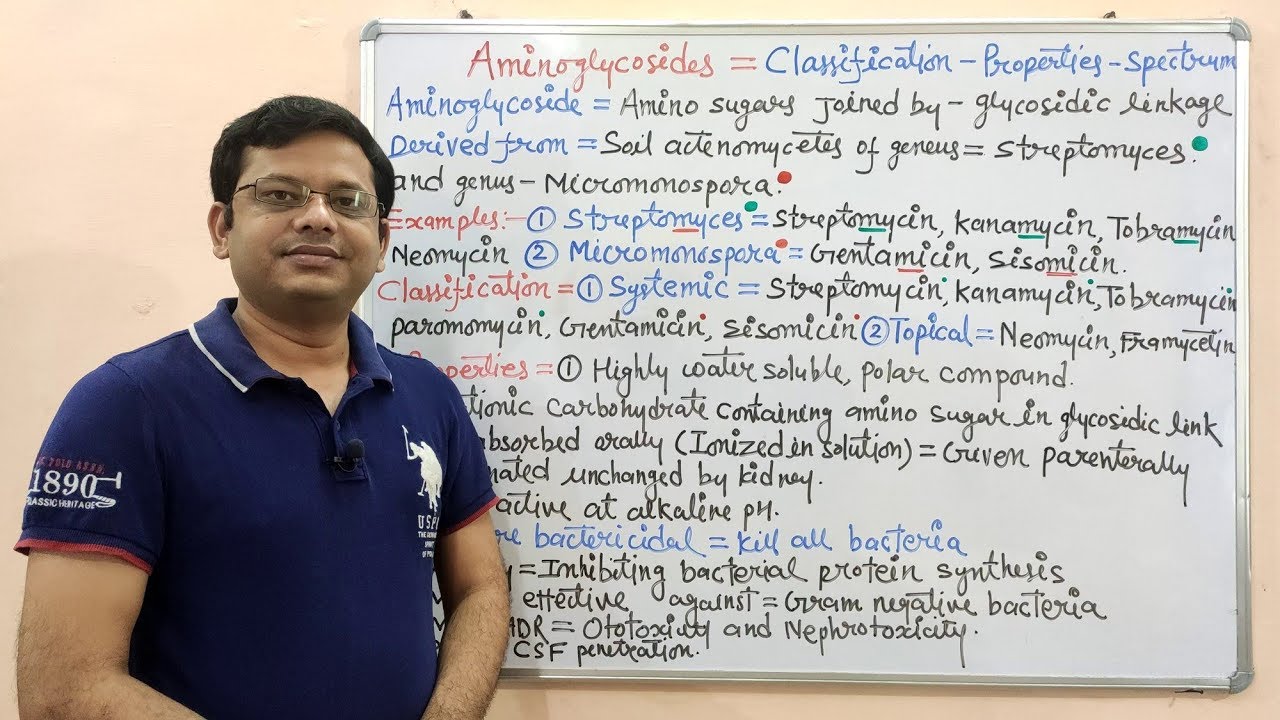 Aminoglycosides = Classification - Properties - Spectrum
Aminoglycoside = Amino sugars joined by - glycosidic linkage
Derived from = Soil actenomycetes of geneus = Streptomyces.
and genus - Micromonospora.
Examples:- ① Streptomyces = Streptomycin, Kanamycin, Tobramycin
Neomycin ② Micromonospora = Gentamicin, Sisomicin.
Classification = ① Systemic = Streptomycin, Kanamycin, Tobramycin
paromomycin, Gentamicin, Sisomicin ② Topical = Neomycin, Framycetin
Properties = ① Highly water soluble, polar compound.
tionic carbohydrate containing amino sugar in glycosidic link
absorbed orally (Ionized in solution) = Given parenterally
nated unchanged by kidney.
active at alkaline pH.
re bactericidal = Kill all bacteria
y = Inhibiting bacterial protein synthesis
effective against = Gram negative bacteria
ADR = Ototoxicity and Nephrotoxicity.
CSF penetration.
1890
CLASSIC HERITAGE
USP